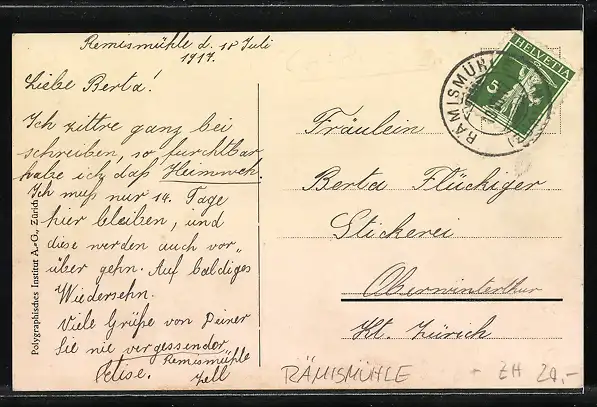 Remismühle d. 18 Juli
1917.
Liebe Berta!
Ich zittre ganz bei
schreiben, so furchtbar
habe ich daß Heimweh.
Ich muß nur 14. Tage
hier bleiben, und
diese werden auch vor„
über gehn. Auf baldiges
Wiedersehn.
Viele Grüße von Deiner
Sie nie vergessender
Elise. Remismühle
Zell
Polygraphisches Institut A.-G., Zürich
HELVETIA
5
RÄMISMÜHLE
Fräulein
Berta Flückiger
Stickerei
Oberwinterthur
Kt. Zürich
RÄMISMÜHLE - ZH 20,-